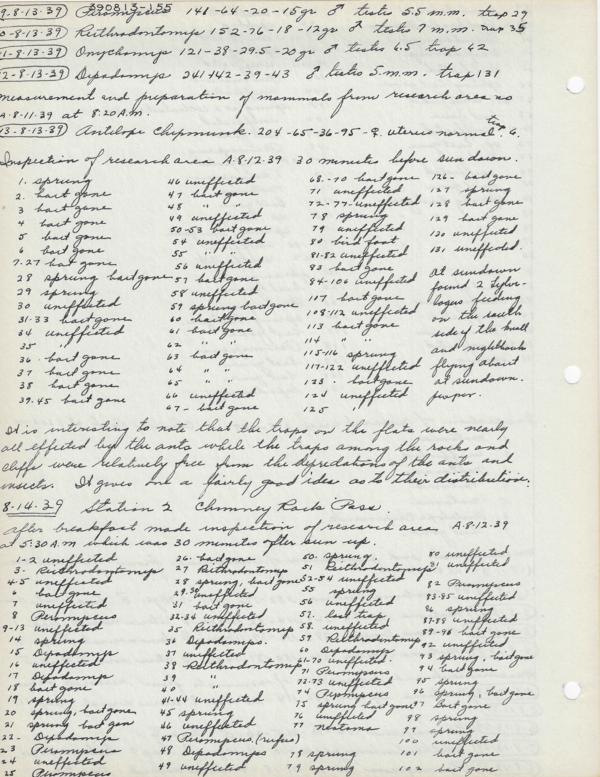 390813-155
9-8.13.39) Peromyscus 148-64-20-15gr ♂ testis 5.5 m.m. trap 29
0-8.13.39) Reithrodontomys 152-76-18-12gr ♂ testes 7 m.m. trap 35
1-8.13.39) Onychomys 121-38-29.5-20gr ♂ testis 6.5 trap 62
2-8.13.39) Dipodomys 241-142-39-43 ♂ testis 5 m.m. trap 131
measurement and preparation of mammals from research area no
A.8-11.39 at 8:20 A.M.
13-8.13.39) Antilope Chipmunk. 204-65-36-95-♀. uterus normal. trap 6.
Inspection of research area A.8.12.39 30 minutes before sun down.
1. sprung
2. bait gone
3 bait gone
4 bait gone
5 bait gone
6 bait gone
7-27 bait gone
28 sprung bait gone
29 sprung
30 uneffected
31-33 bait gone
34 uneffected
35 "
36. bait gone
37 bait gone
38 bait gone
39.45 bait gone
46 uneffected
47 bait gone
48 " "
49 uneffected
50-53 bait gone
54 uneffected
55 " "
56 uneffected
57 bait gone
58 uneffected
59 sprung bait gone
60 bait gone
61 bait gone
62 " "
63 bait gone
64 " "
65 " "
66 uneffected
67- bait gone
68.-70 bait gone
71 uneffected
72-77 uneffected
78 sprung
79 uneffected
80 bird foot
81-82 uneffected
83 bait gone
84-106 uneffected
107 bait gone
108-112 uneffected
113 bait gone
114 " "
115-116 sprung
117-122 uneffected
123. bait gone
124 uneffected
125 "
126- bait gone
127 sprung
128 bait gone
129 bait gone
130 uneffected
131, uneffected.
At sundown
found 2
feeding
on the south
side of the knoll
and nighthawks
flying about
at sundown.
It is interesting to note that the traps on the flats were nearly
all effected by the ants while the traps among the rocks and
cliffs were relatively free from the depredations of the ants and
insects. It gives one a fairly good idea as to their distribution.
8-14.39 Station 2 Chimney Rock Pass.
After breakfast made inspection of research area A.8.12.39
at 5:30 A.M which was 30 minutes after sun up.
1-2 uneffected
3. Reithrodontomys
4-5 uneffected
6 bait gone
7 uneffected
8 Peromyscus
9-13 uneffected
14 sprung
15 Dipodomys
16 uneffected
17 Dipodomys
18 bait gone
19 sprung
20 sprung, bait gone
21 sprung bait gon
22- Dipodomys
23 Peromyscus
24 uneffected
25 Peromyscus
26. bait gone
27 Reithrodontomys
28 sprung, bait gone
29.30 uneffected
31 bait gone
32-34 uneffected
35 Reithrodontomys
36 Dipodomys.
37 uneffected
38 Reithrodontomys
39 "
40 "
41-44 uneffected
45 sprung
46 uneffected
47 Peromyscus (rufus)
48 Dipodomys
49 uneffected
50. sprung.
51 Reithrodontomys
52-54 uneffected
55 sprung
56 uneffected
57. lost trap
58. uneffected
59 Reithrodontomys
60 Dipodomys
61-70 uneffected.
71 Peromyscus
72-73 uneffected
74 Peromyscus
75 sprung bait gone
76 uneffected
77 neotoma
78 sprung
79 sprung
80 uneffected
81 uneffected
82 Peromyscus
83-85 uneffected
86 sprung
87-88 uneffected
89-98 bait gone
92 uneffected
93 sprung, bait gone
94 bait gone
95 sprung
96 sprung, bait gone
97 bait gone
98 sprung
99 sprung
100 uneffected
101 bait gone
102 bait gone